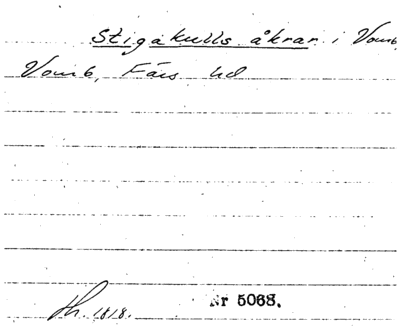 Stigakulls åkrar i Vomb,
Vomb, Färs hd
Th. 1818.
Nr 5068.